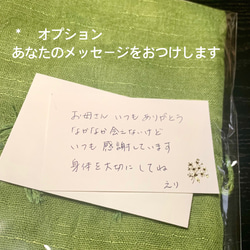 * オプション
あなたのメッセージをおつけします
お母さん いつもありがとう
なかなか会えないけど
いつも 感謝しています
身体を大切に してね
えり